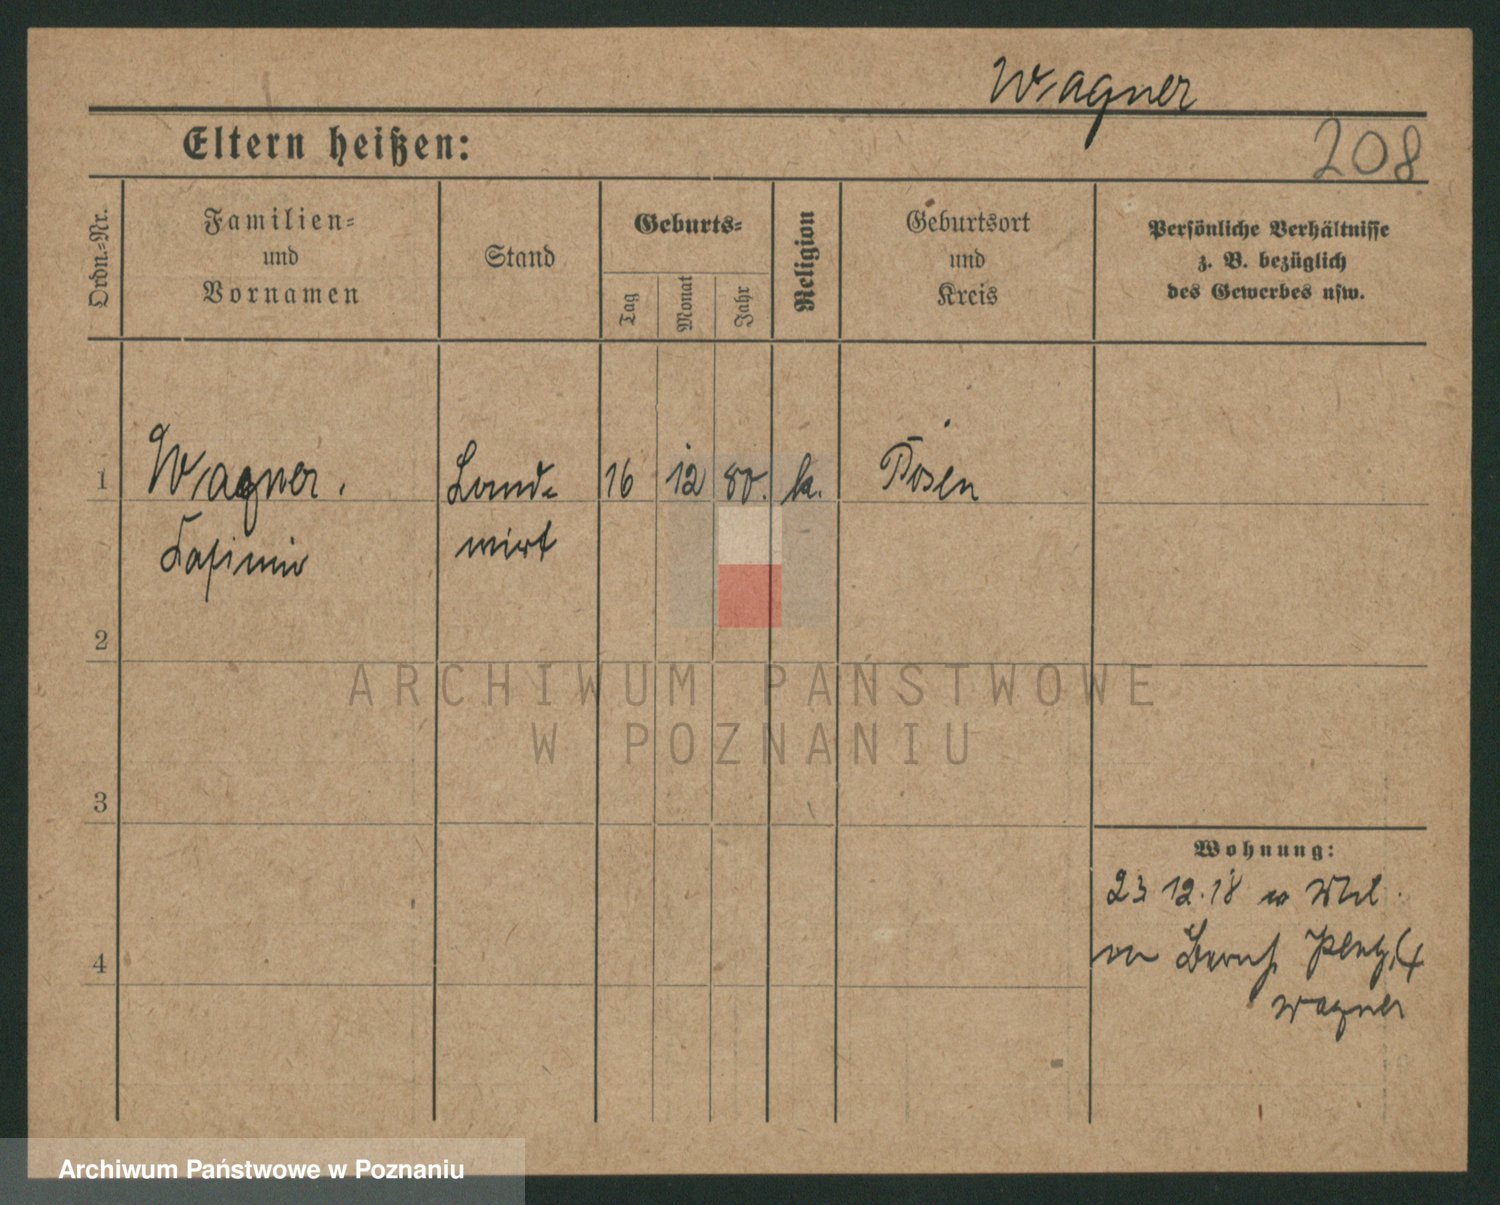 Wagner
208
Eltern heißen:
Ordn.=Nr.
Familien=
und
Vornamen
Stand
Geburts=
Tag
Monat
Jahr
Religion
Geburtsort
und
Kreis
Persönliche Verhältnisse
z. B. bezüglich
des Gewerbes usw.
1 Wagner. Land= 16 12 80. k. Posen
Casimir wirt
2
ARCHIWUM PAŃSTWOWE
W POZNANIU
3
Wohnung:
23 12.18
4
Wagner
Archiwum Państwowe w Poznaniu